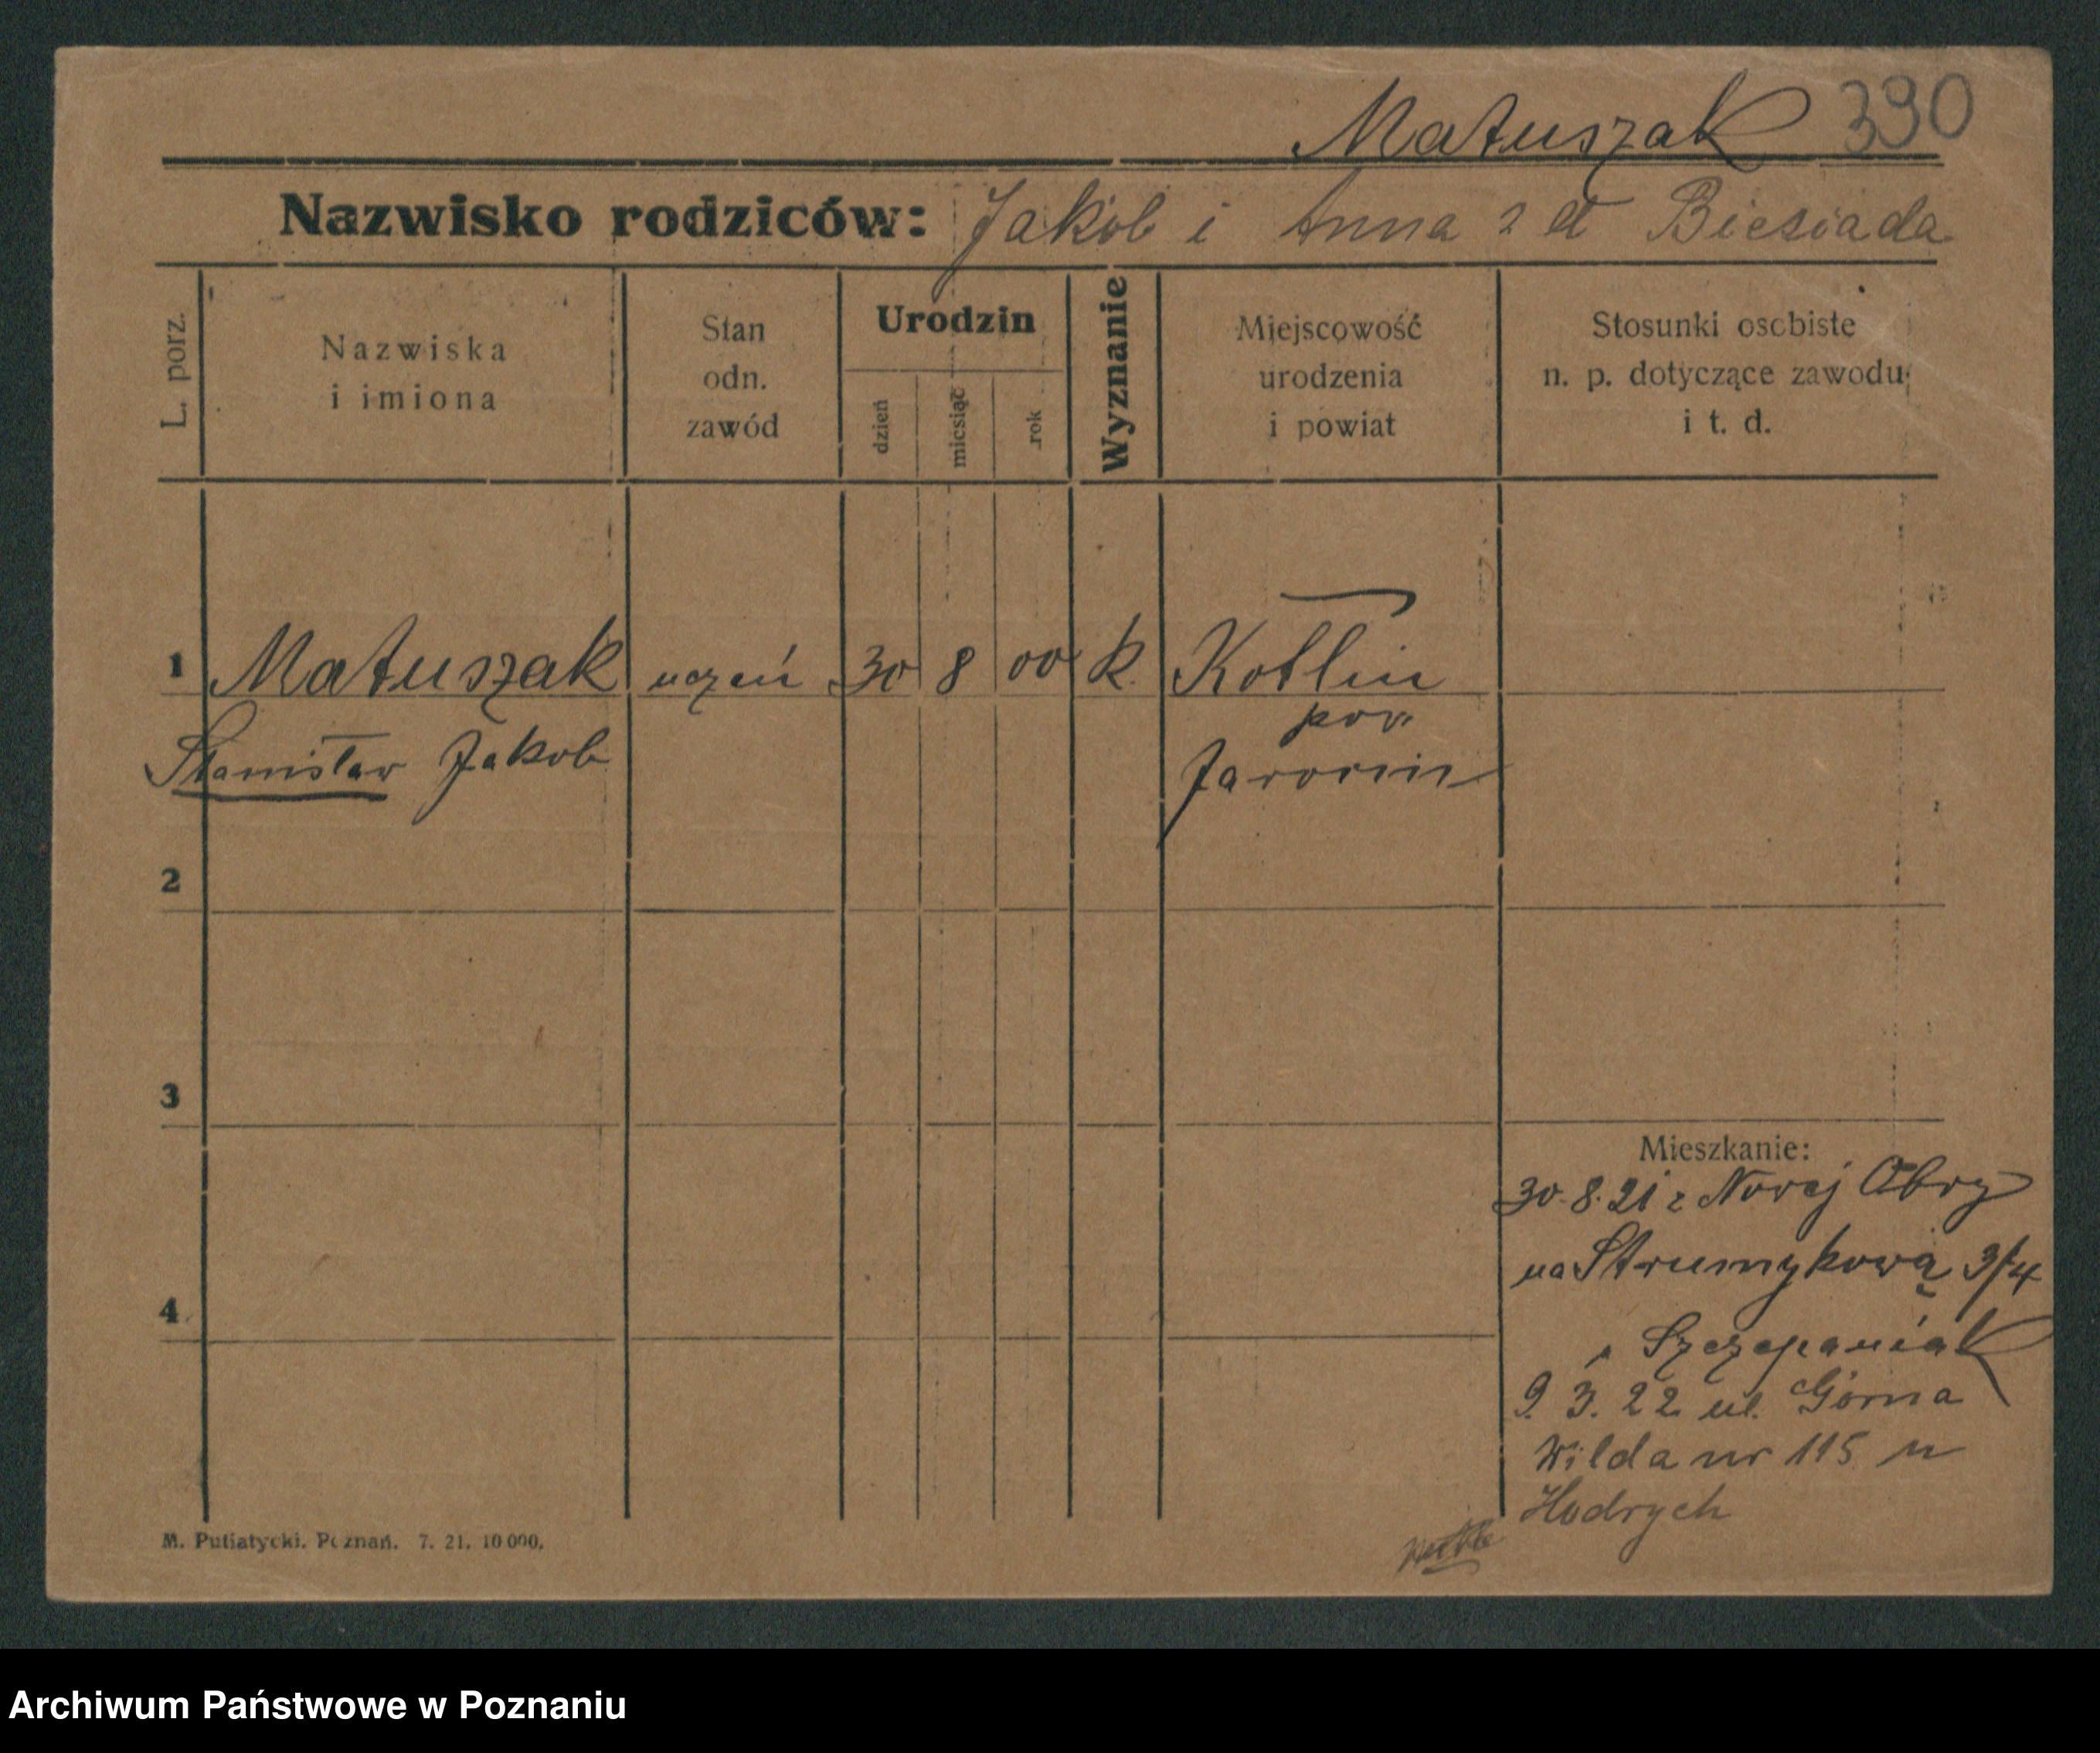 Matuszak 390
Nazwisko rodziców: Jakób i Anna z d Biesiada
L. porz.
Nazwiska
i imiona
Stan
odn.
zawód
Urodzin
dzień
miesiąc
rok
Wyznanie
Miejscowość
urodzenia
i powiat
Stosunki osobiste
n. p. dotyczące zawodu
i t. d.
1 Matuszak uczeń 30 8 00 k. Kotlin
pow.
Stanisław Jakob Jarocin
2
3
4
Mieszkanie:
30.8.21 z Nowej Obry
na Strumykową 3/4
Szczepaniak
9. 3. 22 ul. Górna
Wilda nr 115 u
Hodrych
M. Putiatycki. Poznań. 7. 21. 10 000.
Archiwum Państwowe w Poznaniu